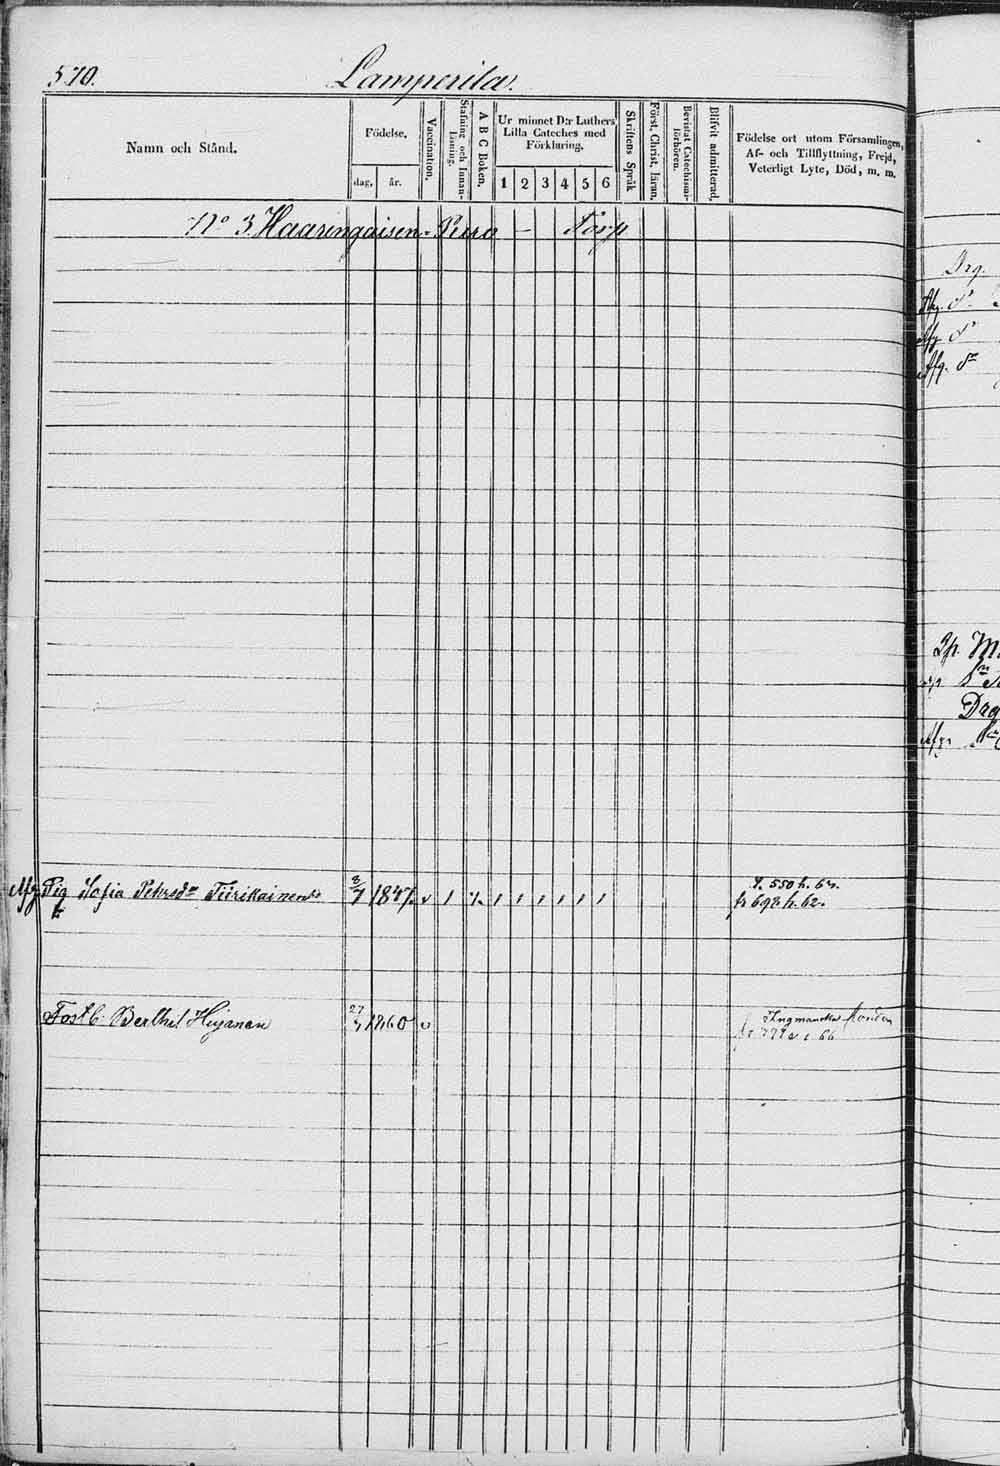 570.
Lamperila.
Namn och Stånd.
Födelse.
dag, år.
Vaccination.
Stafning och Innan-läsning.
A B C Boken.
Ur minnet D:r Luthers
Lilla Cateches med
Förklaring.
1 2 3 4 5 6
Skriftens Språk
Först. Christ. läran.
Bevistat Catechismi-förhören.
Blifvit admitterad.
Födelse ort utom Församlingen,
Af- och Tillflyttning, Frejd,
Veterligt Lyte, Död, m. m.
N:o 3. Haaringaisen-Peura - Torp
Afg Pig Sofia Petersd:r Tiirikainen 8/7 1847. v
t. 550 h. 63.
fr 698 h. 62.
Fostb: Berthil Hujanen 27 1860 v
Ingmanska
66
Drg.
Afg.
Afg.
Afg.